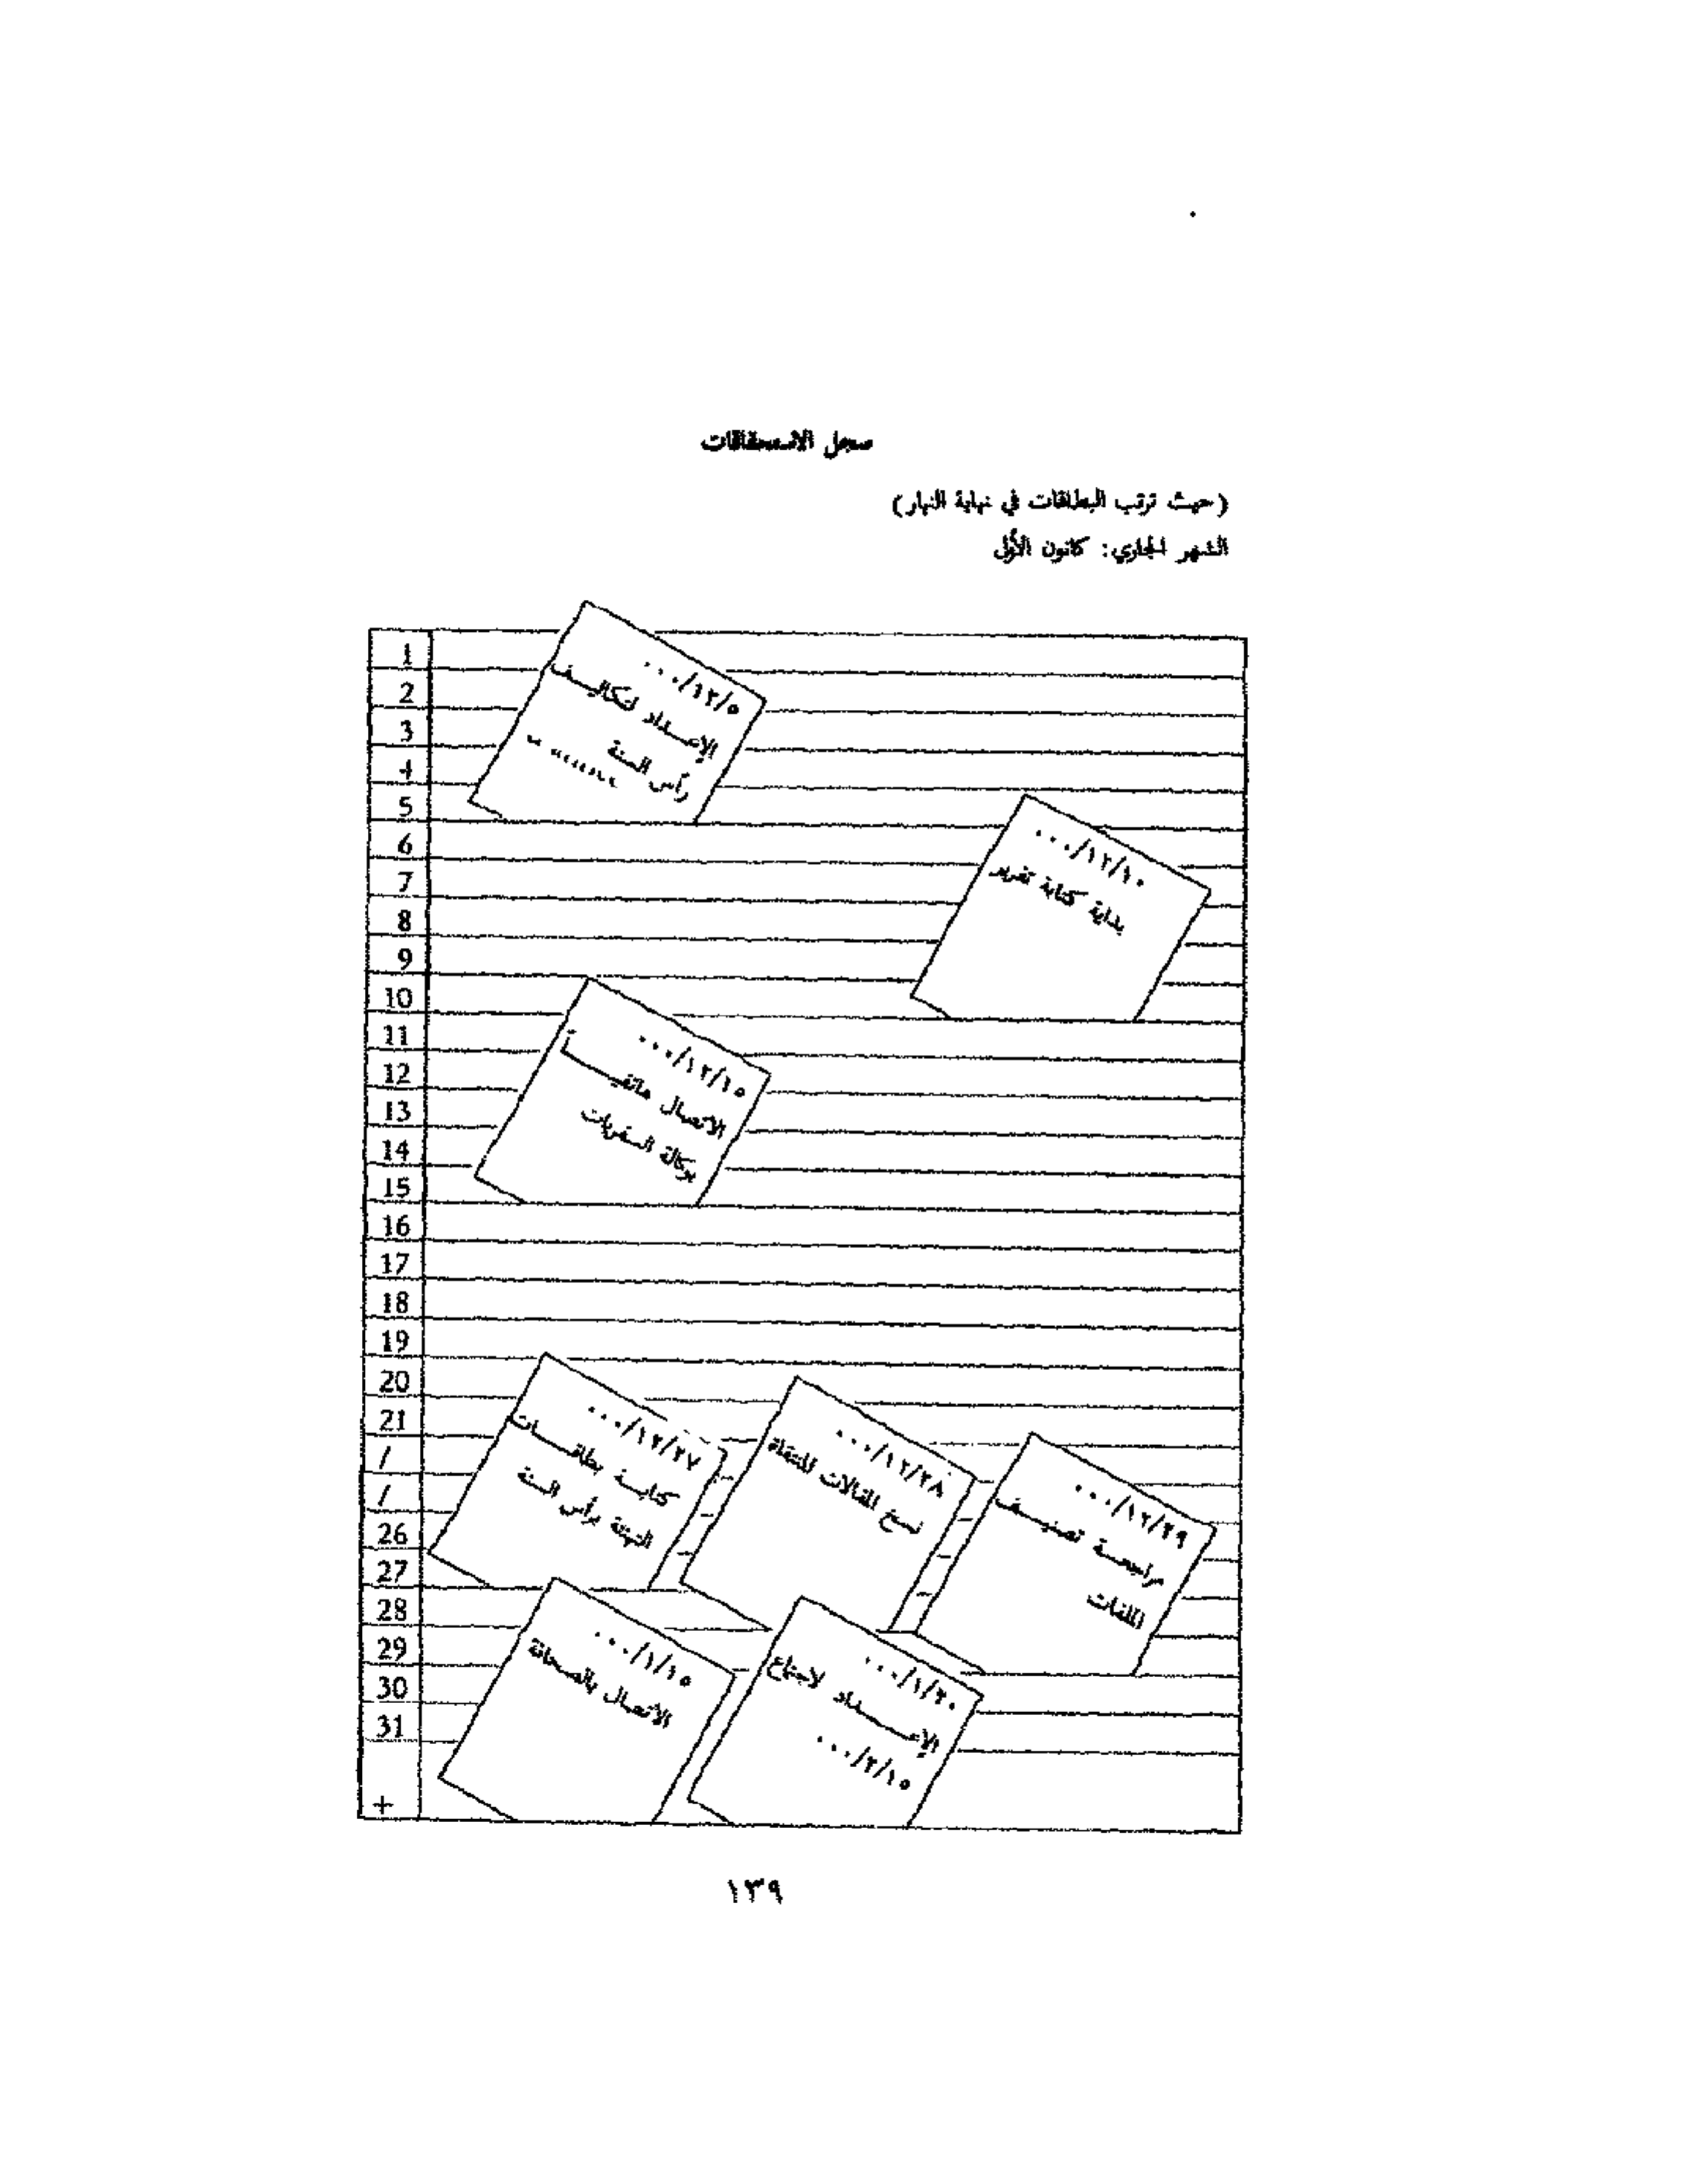 سجل الاستحقاقات
(حيث ترتب البطاقات في نهاية النهار)
الشهر الجاري: كانون الأول
1
2
3
4
5
6
7
8
9
10
11
12
13
14
15
16
17
18
19
20
21
/
/
26
27
28
29
30
31
+
٠٠٠/١٢/٥
الإعداد لتكاليف
رأس السنة
٠٠٠/١٢/١٠
بداية كتابة تقرير
٠٠٠/١٢/١٥
الاتصال هاتفياً
بوكالة السفريات
٠٠٠/١٢/٢٧
كتابة بطاقات
التهنئة برأس السنة
٠٠٠/١٢/٢٨
نسخ المقالات المنتقاة
٠٠٠/١٢/٢٩
مراجعة تصنيف
الملفات
٠٠٠/١/١٥
الاتصال بالصحافة
٠٠٠/١/٢٠
الإعداد لاجتماع
٠٠٠/٢/١٥
١٣٩